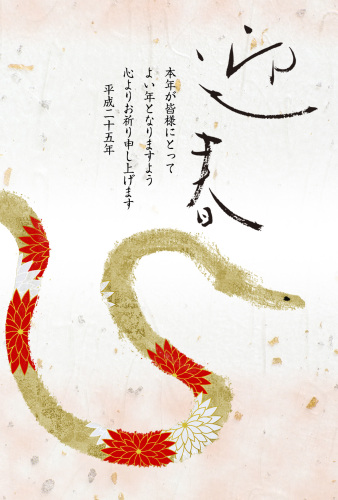 迎春
本年が皆様にとって
よい年となりますよう
心よりお祈り申し上げます
平成二十五年